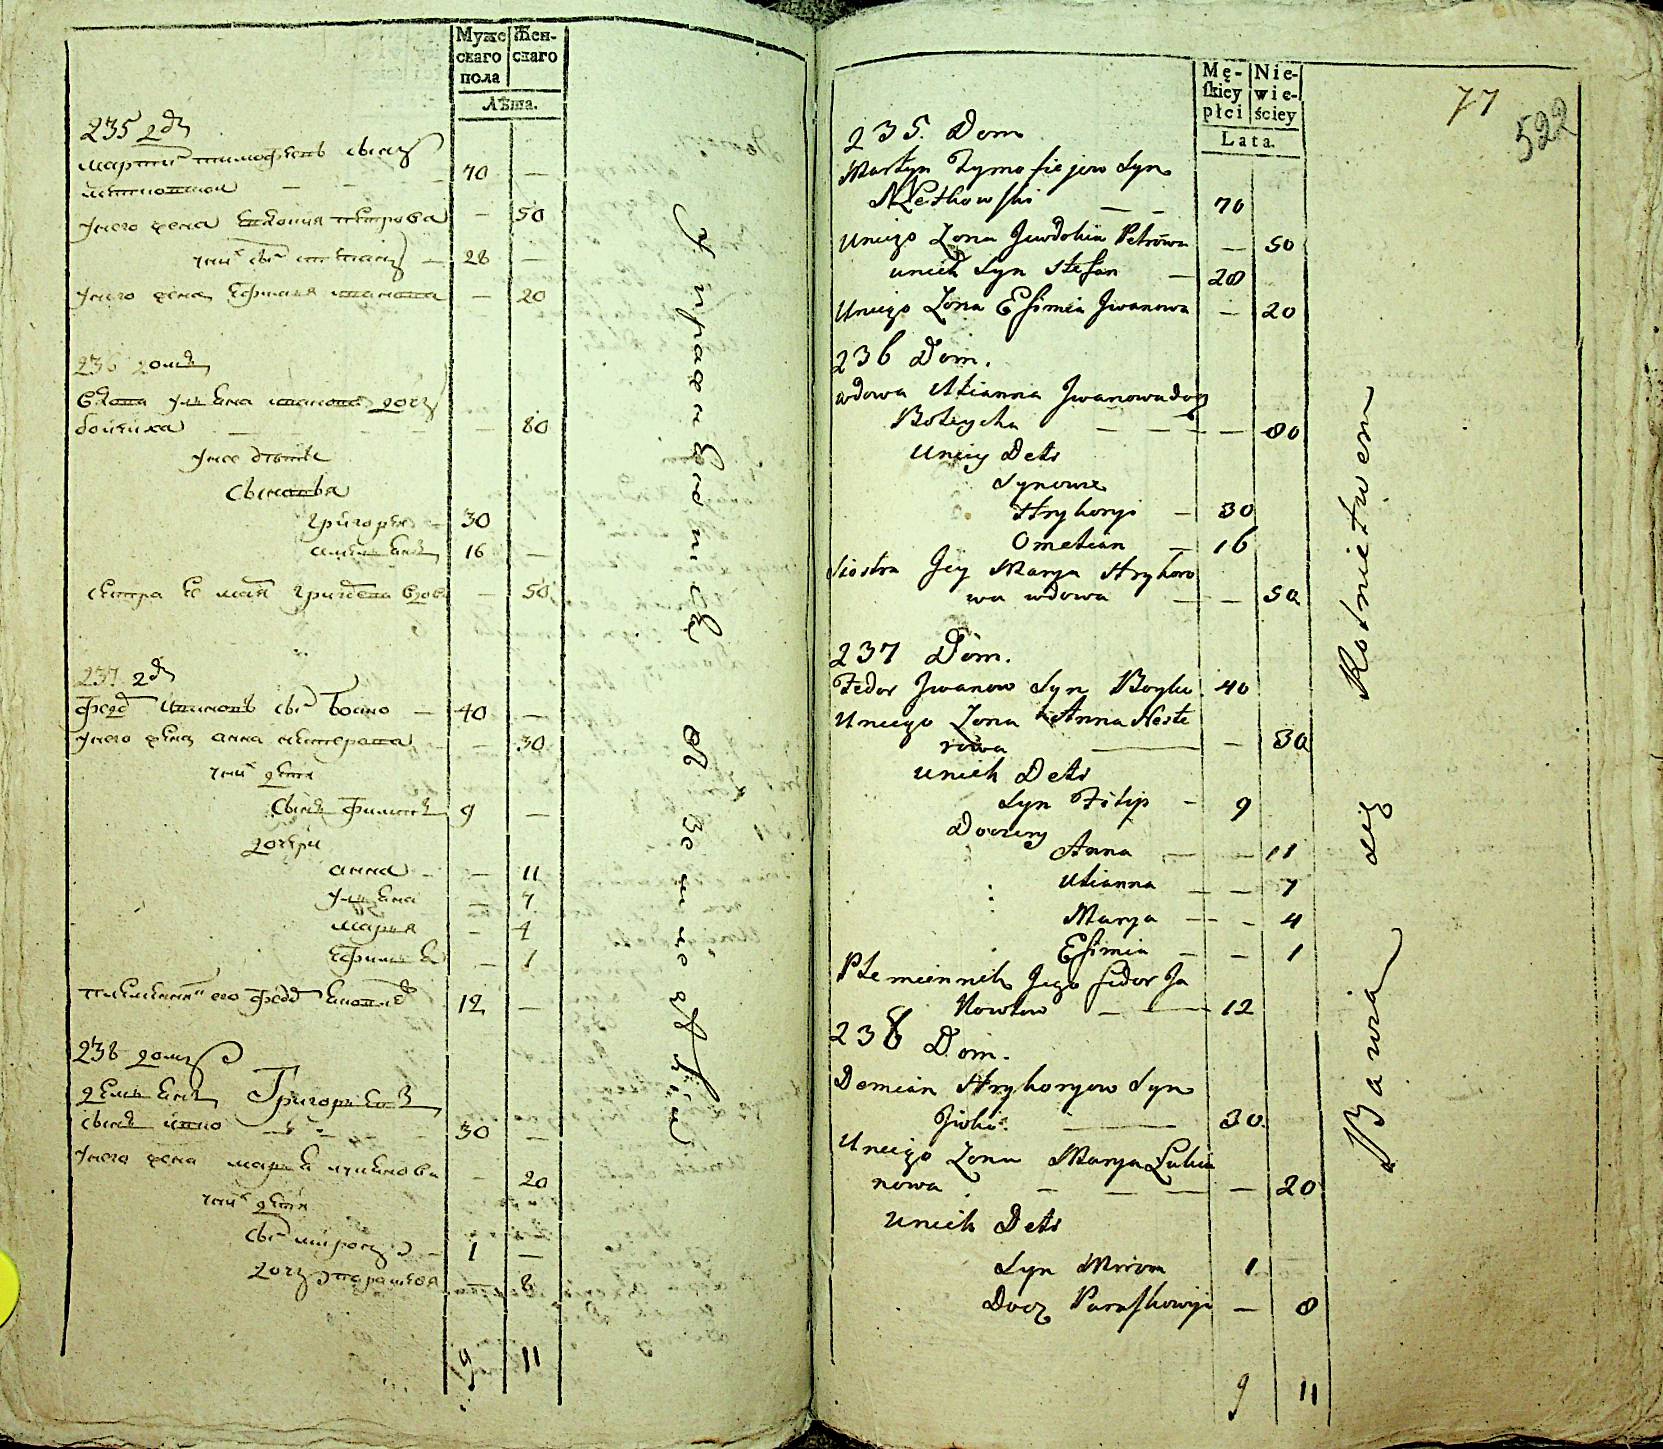 Муже
скаго
пола
Жен-
скаго
Лѣта.
235 дз
мартинъ тимофеевъ сынъ
70 —
унего жена евдокия петрова — 50
унихъ сынъ стефанъ — 28 —
унего жена ефимия иванова — 20
236 домъ
вдова улияна иванова дочь
бойчиха — — — 80
унее дѣти
сыновья
григорей — 30
емелиянъ 16 —
сестра ее мария вдова — 50
237 дз
федоръ ивановъ сынъ бойко — 40 —
унего жена анна нестерова — 30
унихъ дети
сынъ филипъ 9 —
дочери
анна — — 11
улияна — 7
марья — 4
ефимия — 1
племянникъ его федоръ 12 —
238 домъ
демиянъ Григорьевъ
сынъ 30 —
унего жена марья лукянова — 20
унихъ дети
сынъ миронъ — 1 —
дочь парасковя — 8
9 11
Упражняются
в
Mę-
skiey
płci
Nie-
wie-
ściey
Lata.
77
522
235. Dom
Martyn Tymofiejow Syn
— — 70
Uniego Zona Jewdokia Petrowa — 50
unich Syn Stefan — 28
Uniego Zona Efimia Jwanowa — 20
236 Dom.
wdowa Ulianna Jwanowa docz
Boteycha — — — — 80
Uniey Deti
Synowie
Hryhory — 30
Omelian — 16
Siostra Jey Marya Hryhoro
wa wdowa — — 50
237 Dom.
Fedor Jwanow Syn Boyko 40
Uniego Zona Anna Neste
rowa — — 30
unich Deti
Syn Filip — 9
Doczery
Anna — — 11
Ulianna — — 7
Marya — — 4
Efimia — — 1
Plemiennik Jego fedor Ja
kowlow — — 12
238 Dom.
Demian Hryhoryow Syn
— 30.
Uniego Zona Marya Lukia
nowa — — — — 20
unich Deti
Syn Miron 1
Docz Paraskowia — 8
9 11
Bawia się Rolnictwem